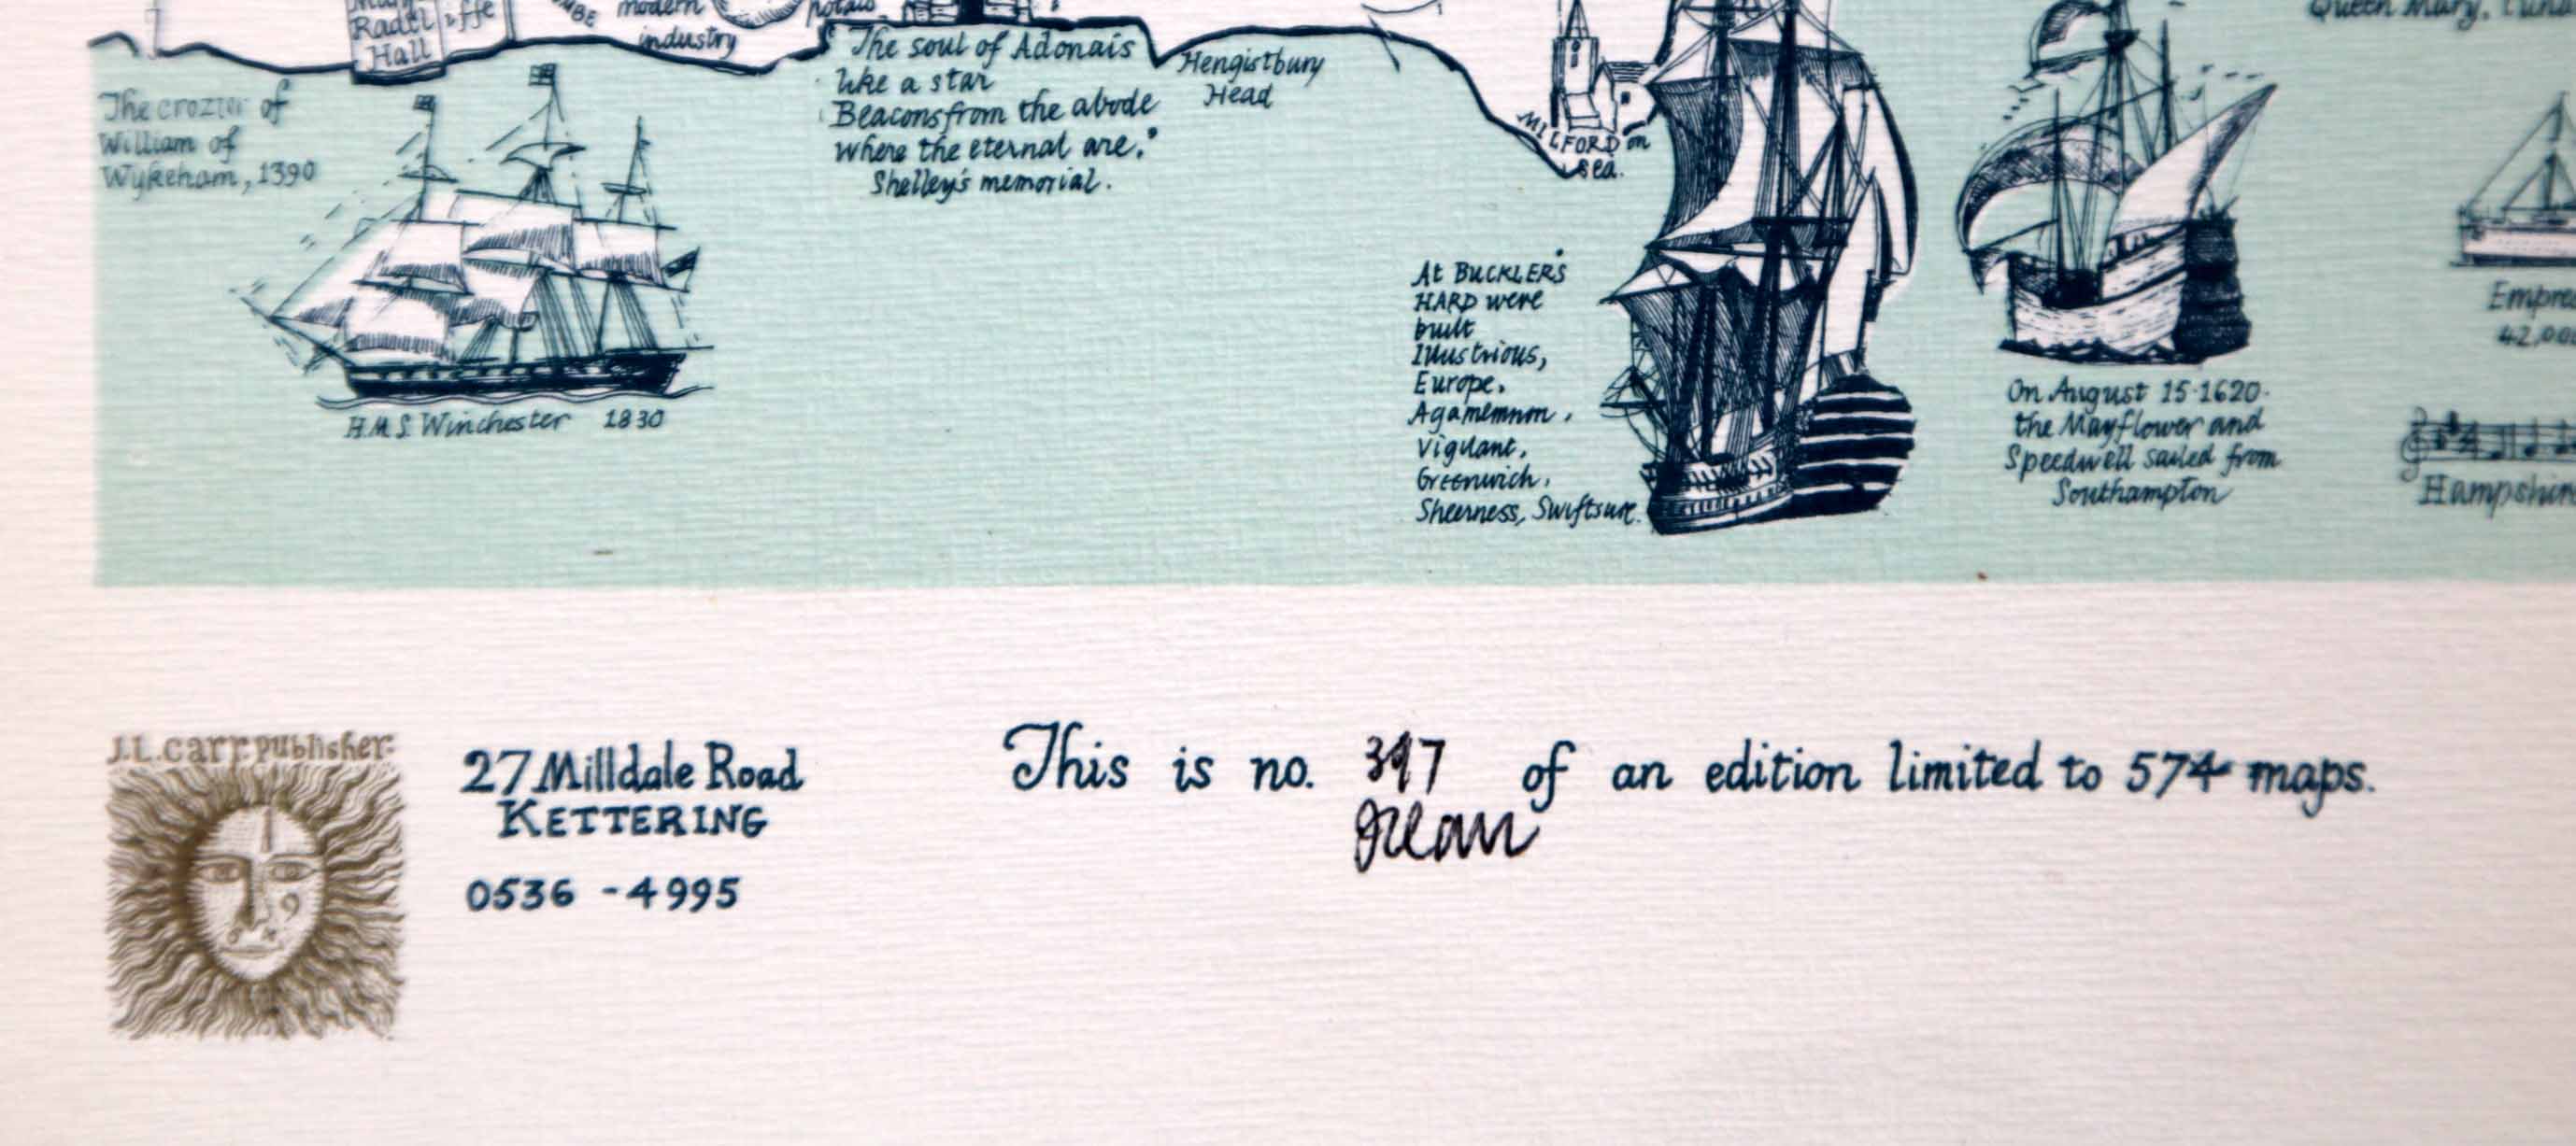 Hall
modern
industry
The crozier of
William of
Wykeham, 1390
H.M.S. Winchester 1830
The soul of Adonais
like a star
Beacons from the abode
where the eternal are."
Shelley's memorial.
Hengistbury
Head
MILFORD on
sea.
At BUCKLER'S
HARD were
built
Illustrious,
Europe,
Agamemnon,
Vigilant,
Greenwich,
Sheerness, Swiftsure.
On August 15·1620·
the Mayflower and
Speedwell sailed from
Southampton
Queen Mary,
J.L.Carr. publisher.
27 Milldale Road
KETTERING
0536 - 4995
This is no. 397 of an edition limited to 574 maps.